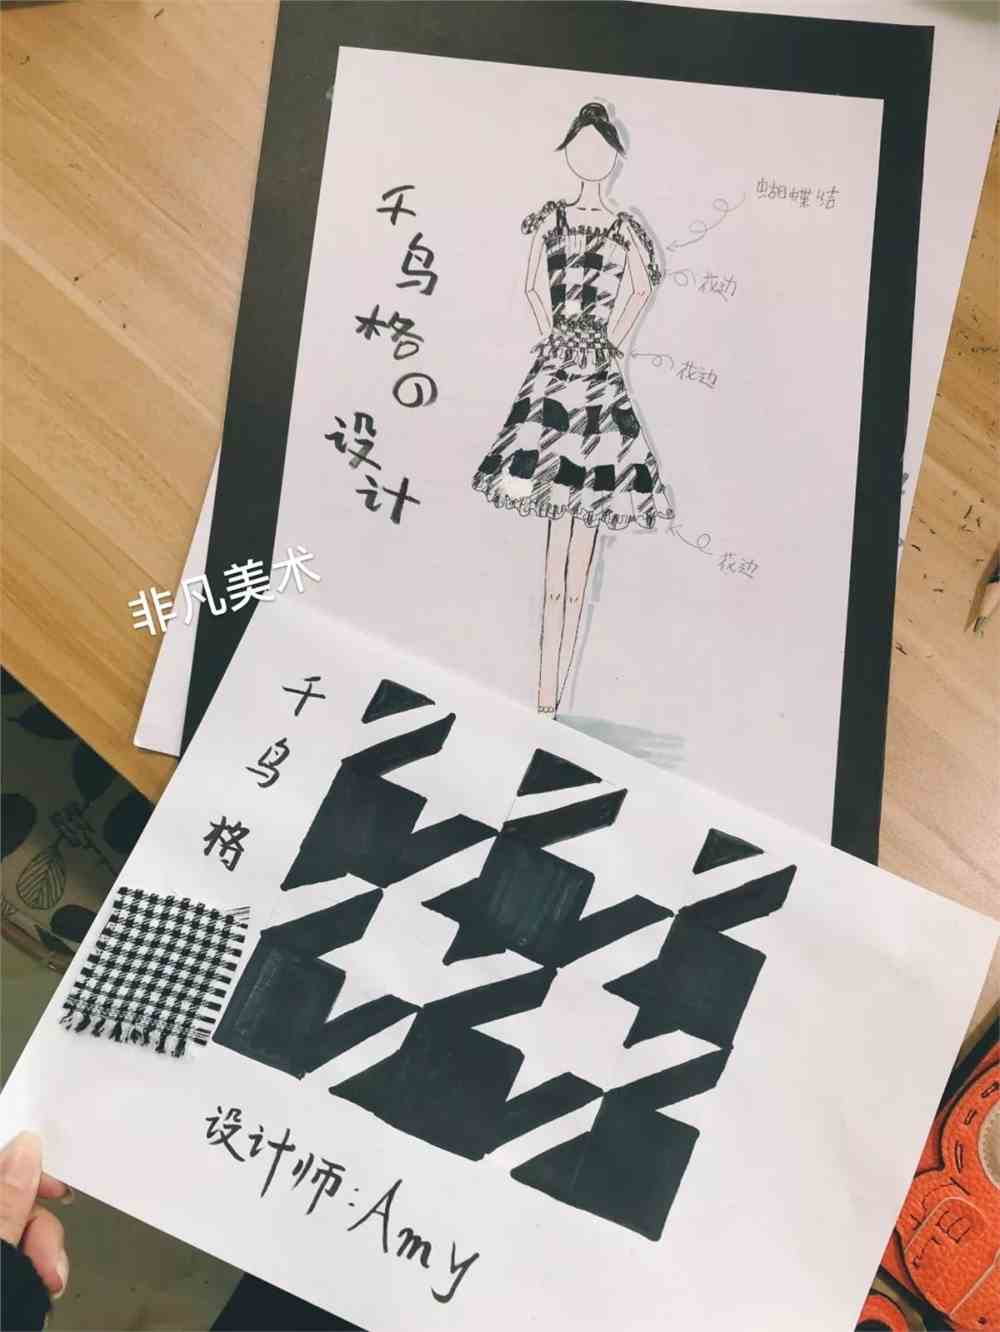 千鸟格の设计
蝴蝶结
花边
花边
花边
非凡美术
千鸟格
设计师:Amy